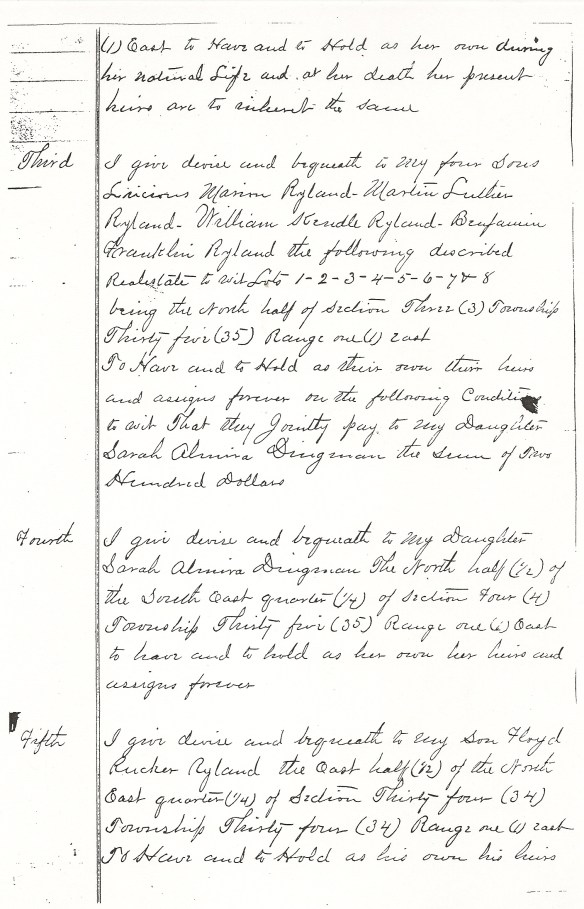 (1) East to Have and to Hold as her own during
her natural Life and at her death her present
heirs are to inherit the same
Third I give devise and bequeath to My four Sons
Linicious Marion Ryland - Martin Luther
Ryland - William Kendle Ryland - Benjamin
Franklin Ryland the following described
Realestate to wit Lots 1-2-3-4-5-6-7 & 8
being the North half of Section Three (3) Township
Thirty five (35) Range one (1) east
To Have and to Hold as their own their heirs
and assigns forever on the following Condition
to wit That they Jointly pay to my Daughter
Sarah Almira Dingman the sum of Two
Hundred Dollars
Fourth I give devise and bequeath to My Daughter
Sarah Almira Dingman The North half (1/2) of
the South East quarter (1/4) of Section Four (4)
Township Thirty five (35) Range one (1) East
to have and to hold as her own her heirs and
assigns forever
Fifth I give devise and bequeath to My Son Floyd
Rucker Ryland the East half (1/2) of the North
East quarter (1/4) of Section Thirty four (34)
Township Thirty four (34) Range one (1) east
To Have and to Hold as his own his heirs